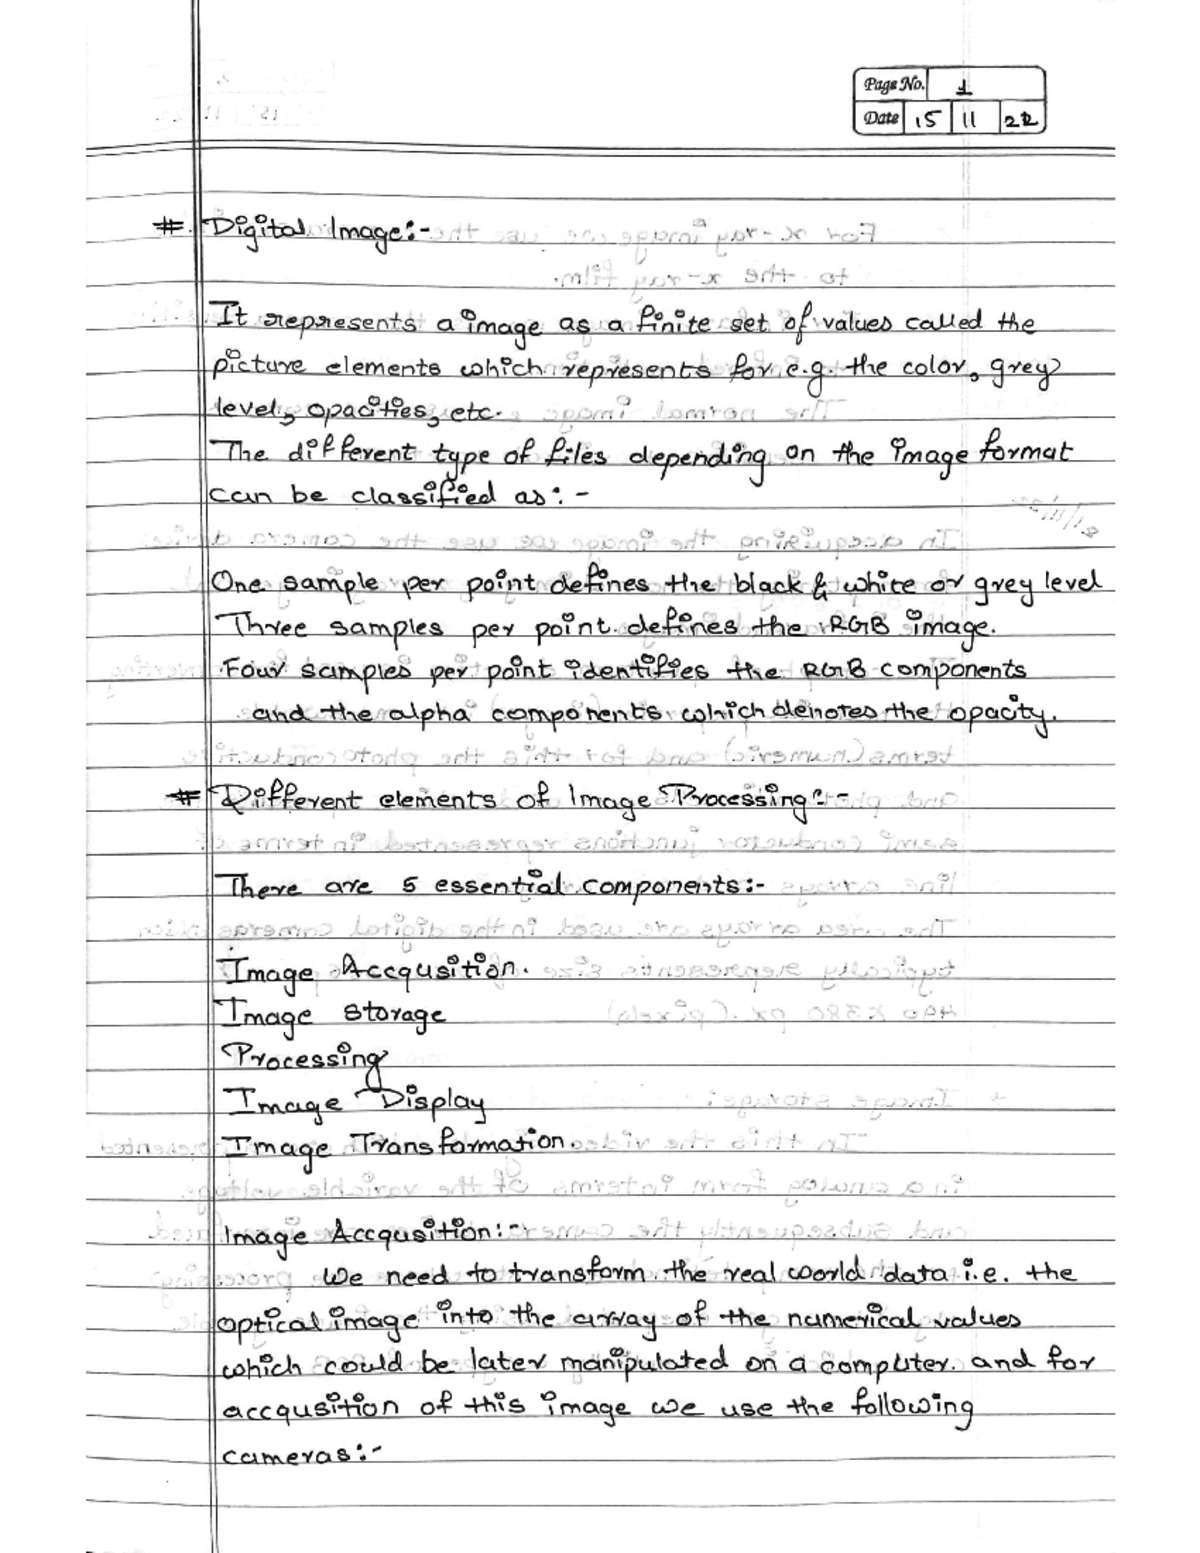 Page No. 1
Date 15 11 22
#. Digital Image:-
It represents a image as a finite set of values called the
picture elements which represents for e.g. the color, grey
level, opacities, etc.
The different type of files depending on the image format
can be classified as:-
One sample per point defines the black & white or grey level
Three samples per point defines the RGB image.
Four samples per point identifies the RGB components
and the alpha components which denotes the opacity.
# Different elements of Image Processing:-
There are 5 essential components:-
Image Accqusition.
Image Storage
Processing
Image Display
Image Transformation.
Image Accqusition:-
We need to transform the real world data i.e. the
optical image into the array of the numerical values
which could be later manipulated on a computer. and for
accqusition of this image we use the following
cameras:-